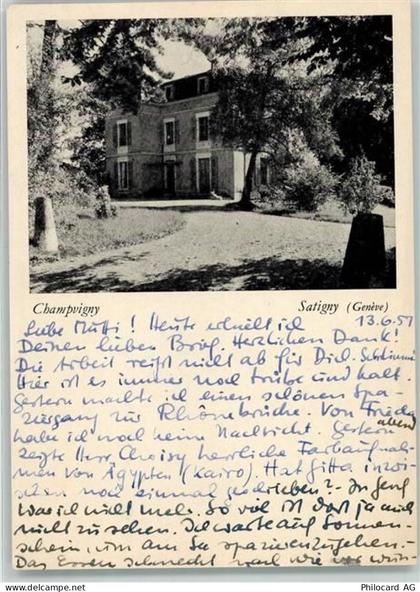 Champvigny Satigny (Genève)
Liebe Mutti! Heute erhielt ich 13.6.51
Deinen lieben Brief. Herzlichen Dank!
Die Arbeit reißt nicht ab für Dich. Schlimm
Hier ist es immer noch trübe und kalt.
Gestern machte ich einen schönen Spa-
ziergang zur Rhônebrücke. Von Frieda
habe ich noch keine Nachricht. Gestern abend
zeigte Herr Choisy herrliche Farbaufnah-
men von Ägypten (Kairo). Hat Gitta inzwi-
schen noch einmal geschrieben? - In Genf
war ich nicht mehr. So viel ist dort ja auch
nicht zu sehen. Ich warte auf Sonnen-
schein, um am See spazierenzugehen. -
Das Essen schmeckt nach wie vor wun-